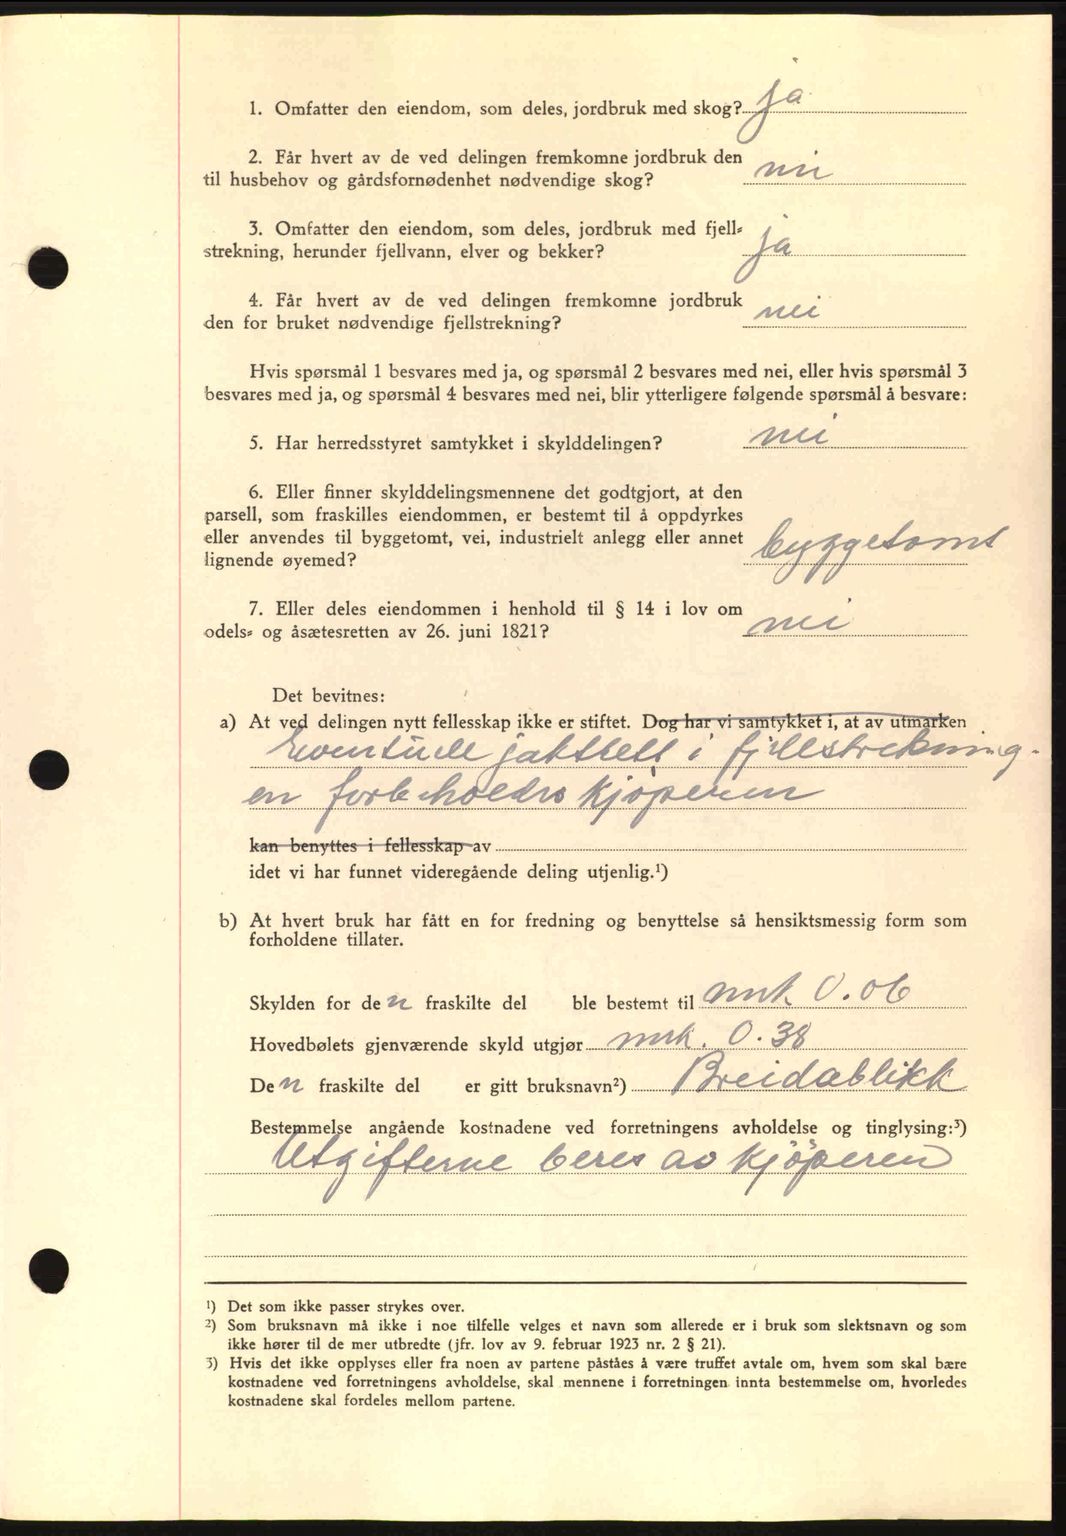 1. Omfatter den eiendom, som deles, jordbruk med skog? ja
2. Får hvert av de ved delingen fremkomne jordbruk den
til husbehov og gårdsfornødenhet nødvendige skog? nei
3. Omfatter den eiendom, som deles, jordbruk med fjell-
strekning, herunder fjellvann, elver og bekker? ja
4. Får hvert av de ved delingen fremkomne jordbruk
den for bruket nødvendige fjellstrekning? nei
Hvis spørsmål 1 besvares med ja, og spørsmål 2 besvares med nei, eller hvis spørsmål 3
besvares med ja, og spørsmål 4 besvares med nei, blir ytterligere følgende spørsmål å besvare:
5. Har herredsstyret samtykket i skylddelingen? nei
6. Eller finner skylddelingsmennene det godtgjort, at den
parsell, som fraskilles eiendommen, er bestemt til å oppdyrkes
eller anvendes til byggetomt, vei, industrielt anlegg eller annet
lignende øyemed? byggetomt
7. Eller deles eiendommen i henhold til § 14 i lov om
odels- og åsætesretten av 26. juni 1821? nei
Det bevitnes:
a) At ved delingen nytt fellesskap ikke er stiftet. Dog har vi samtykket i, at av utmarken
Eventuell jaktrett i fjellstrekning-
en forbeholdes kjøperen
kan benyttes i fellesskap av
idet vi har funnet videregående deling utjenlig.¹)
b) At hvert bruk har fått en for fredning og benyttelse så hensiktsmessig form som
forholdene tillater.
Skylden for den fraskilte del ble bestemt til mrk. 0.06
Hovedbølets gjenværende skyld utgjør mrk. 0.38
Den fraskilte del er gitt bruksnavn²) Breidablikk
Bestemmelse angående kostnadene ved forretningens avholdelse og tinglysing:³)
Utgifterne beres av kjöperen
¹) Det som ikke passer strykes over.
²) Som bruksnavn må ikke i noe tilfelle velges et navn som allerede er i bruk som slektsnavn og som
ikke hører til de mer utbredte (jfr. lov av 9. februar 1923 nr. 2 § 21).
³) Hvis det ikke opplyses eller fra noen av partene påståes å være truffet avtale om, hvem som skal bære
kostnadene ved forretningens avholdelse, skal mennene i forretningen innta bestemmelse om, hvorledes
kostnadene skal fordeles mellom partene.